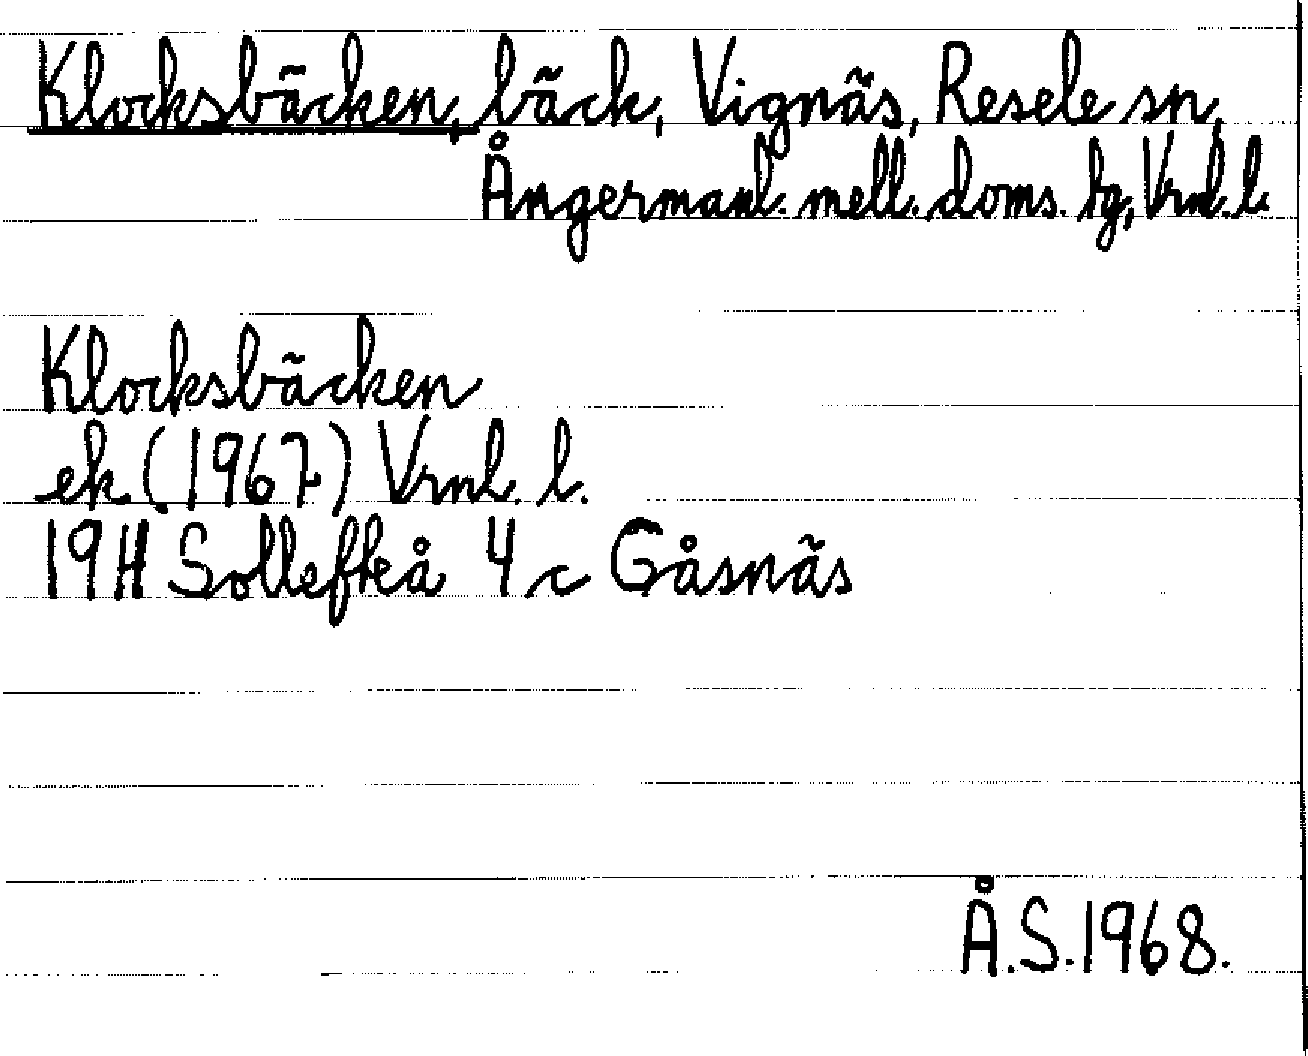 Klocksbäcken, bäck, Vignäs, Resele sn,
Ångermanl. mell. doms. tg, Vrnl. l.
Klocksbäcken
ek (1967) Vrnl. l.
19H Sollefteå 4 c Gåsnäs
Å.S. 1968.